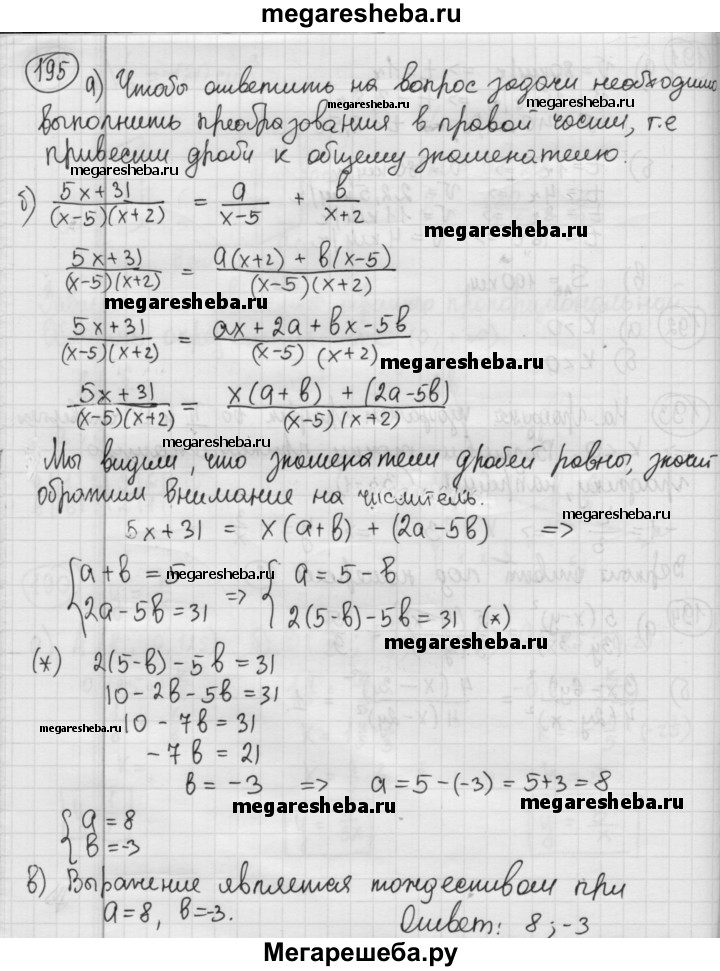 megaresheba.ru
195
а) Чтобы ответить на вопрос задачи необходимо
megaresheba.ru megaresheba.ru
выполнить преобразования в правой части, т.е
привести дроби к общему знаменателю.
б) (5x+31)/((x-5)(x+2)) = a/(x-5) + b/(x+2)
megaresheba.ru
(5x+31)/((x-5)(x+2)) = (a(x+2) + b(x-5))/((x-5)(x+2))
megaresheba.ru
(5x+31)/((x-5)(x+2)) = (ax+2a+bx-5b)/((x-5)(x+2))
megaresheba.ru
(5x+31)/((x-5)(x+2)) = (x(a+b) + (2a-5b))/((x-5)(x+2))
megaresheba.ru
Мы видим, что знаменатели дробей равны, значит
обратим внимание на числитель.
megaresheba.ru
5x+31 = x(a+b) + (2a-5b) =>
{a+b = 5 => {a = 5-b
megaresheba.ru
{2a-5b = 31 {2(5-b)-5b = 31 (*)
megaresheba.ru
(*) 2(5-b)-5b = 31
10-2b-5b = 31
megaresheba.ru
10-7b = 31
-7b = 21
b = -3 => a = 5-(-3) = 5+3 = 8
megaresheba.ru megaresheba.ru
{a = 8
{b = -3
в) Выражение является тождеством при
a = 8, b = -3. Ответ: 8; -3
Мегарешеба.ру